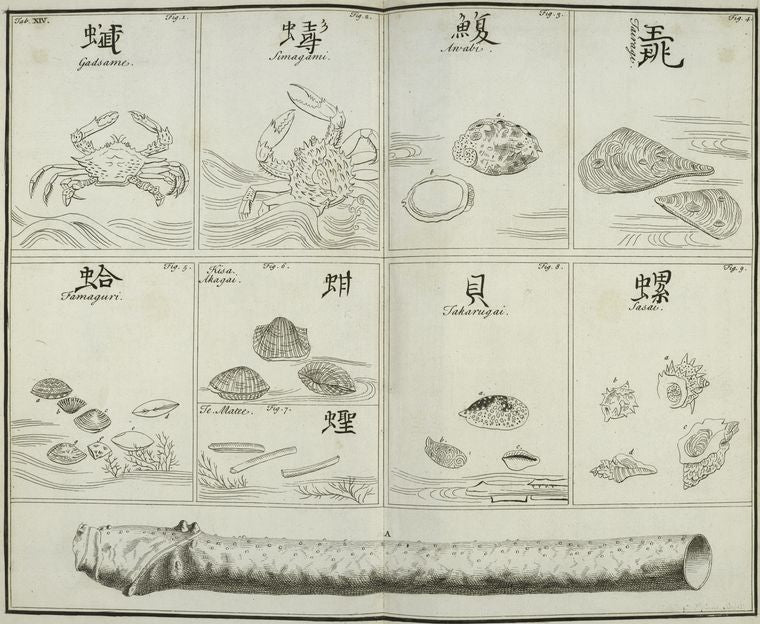 Tab. XIV.
Fig. 1.
Gadsame.
Fig. 2.
Simagami.
Fig. 3.
鰒
Awabi.
a
b
Fig. 4.
Tairagi.
Fig. 5.
蛤
Famaguri.
a
b
c
d
e
Kisa.
Akagai.
Fig. 6.
蚶
Te. Matee.
Fig. 7.
蟶
Fig. 8.
貝
Takarugai.
a
b
c
Fig. 9.
螺
Sasai.
a
b
c
d
A